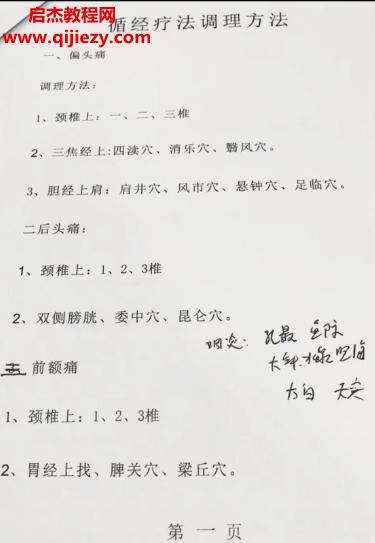 启杰教程网
www.qijiezy.com
循经疗法调理方法
一、偏头痛
调理方法：
1、颈椎上：一、二、三椎
2、三焦经上:四渎穴、消乐穴、翳风穴。
3、胆经上肩：肩井穴、风市穴、悬钟穴、足临穴。
二后头痛：
1、颈椎上：1、2、3椎
2、双侧膀胱、委中穴、昆仑穴。
咽炎：孔最 鱼际
大钟 水泉 照海
太白 天突
五 前额痛
1、颈椎上：1、2、3椎
2、胃经上找、脾关穴、梁丘穴。
第一页